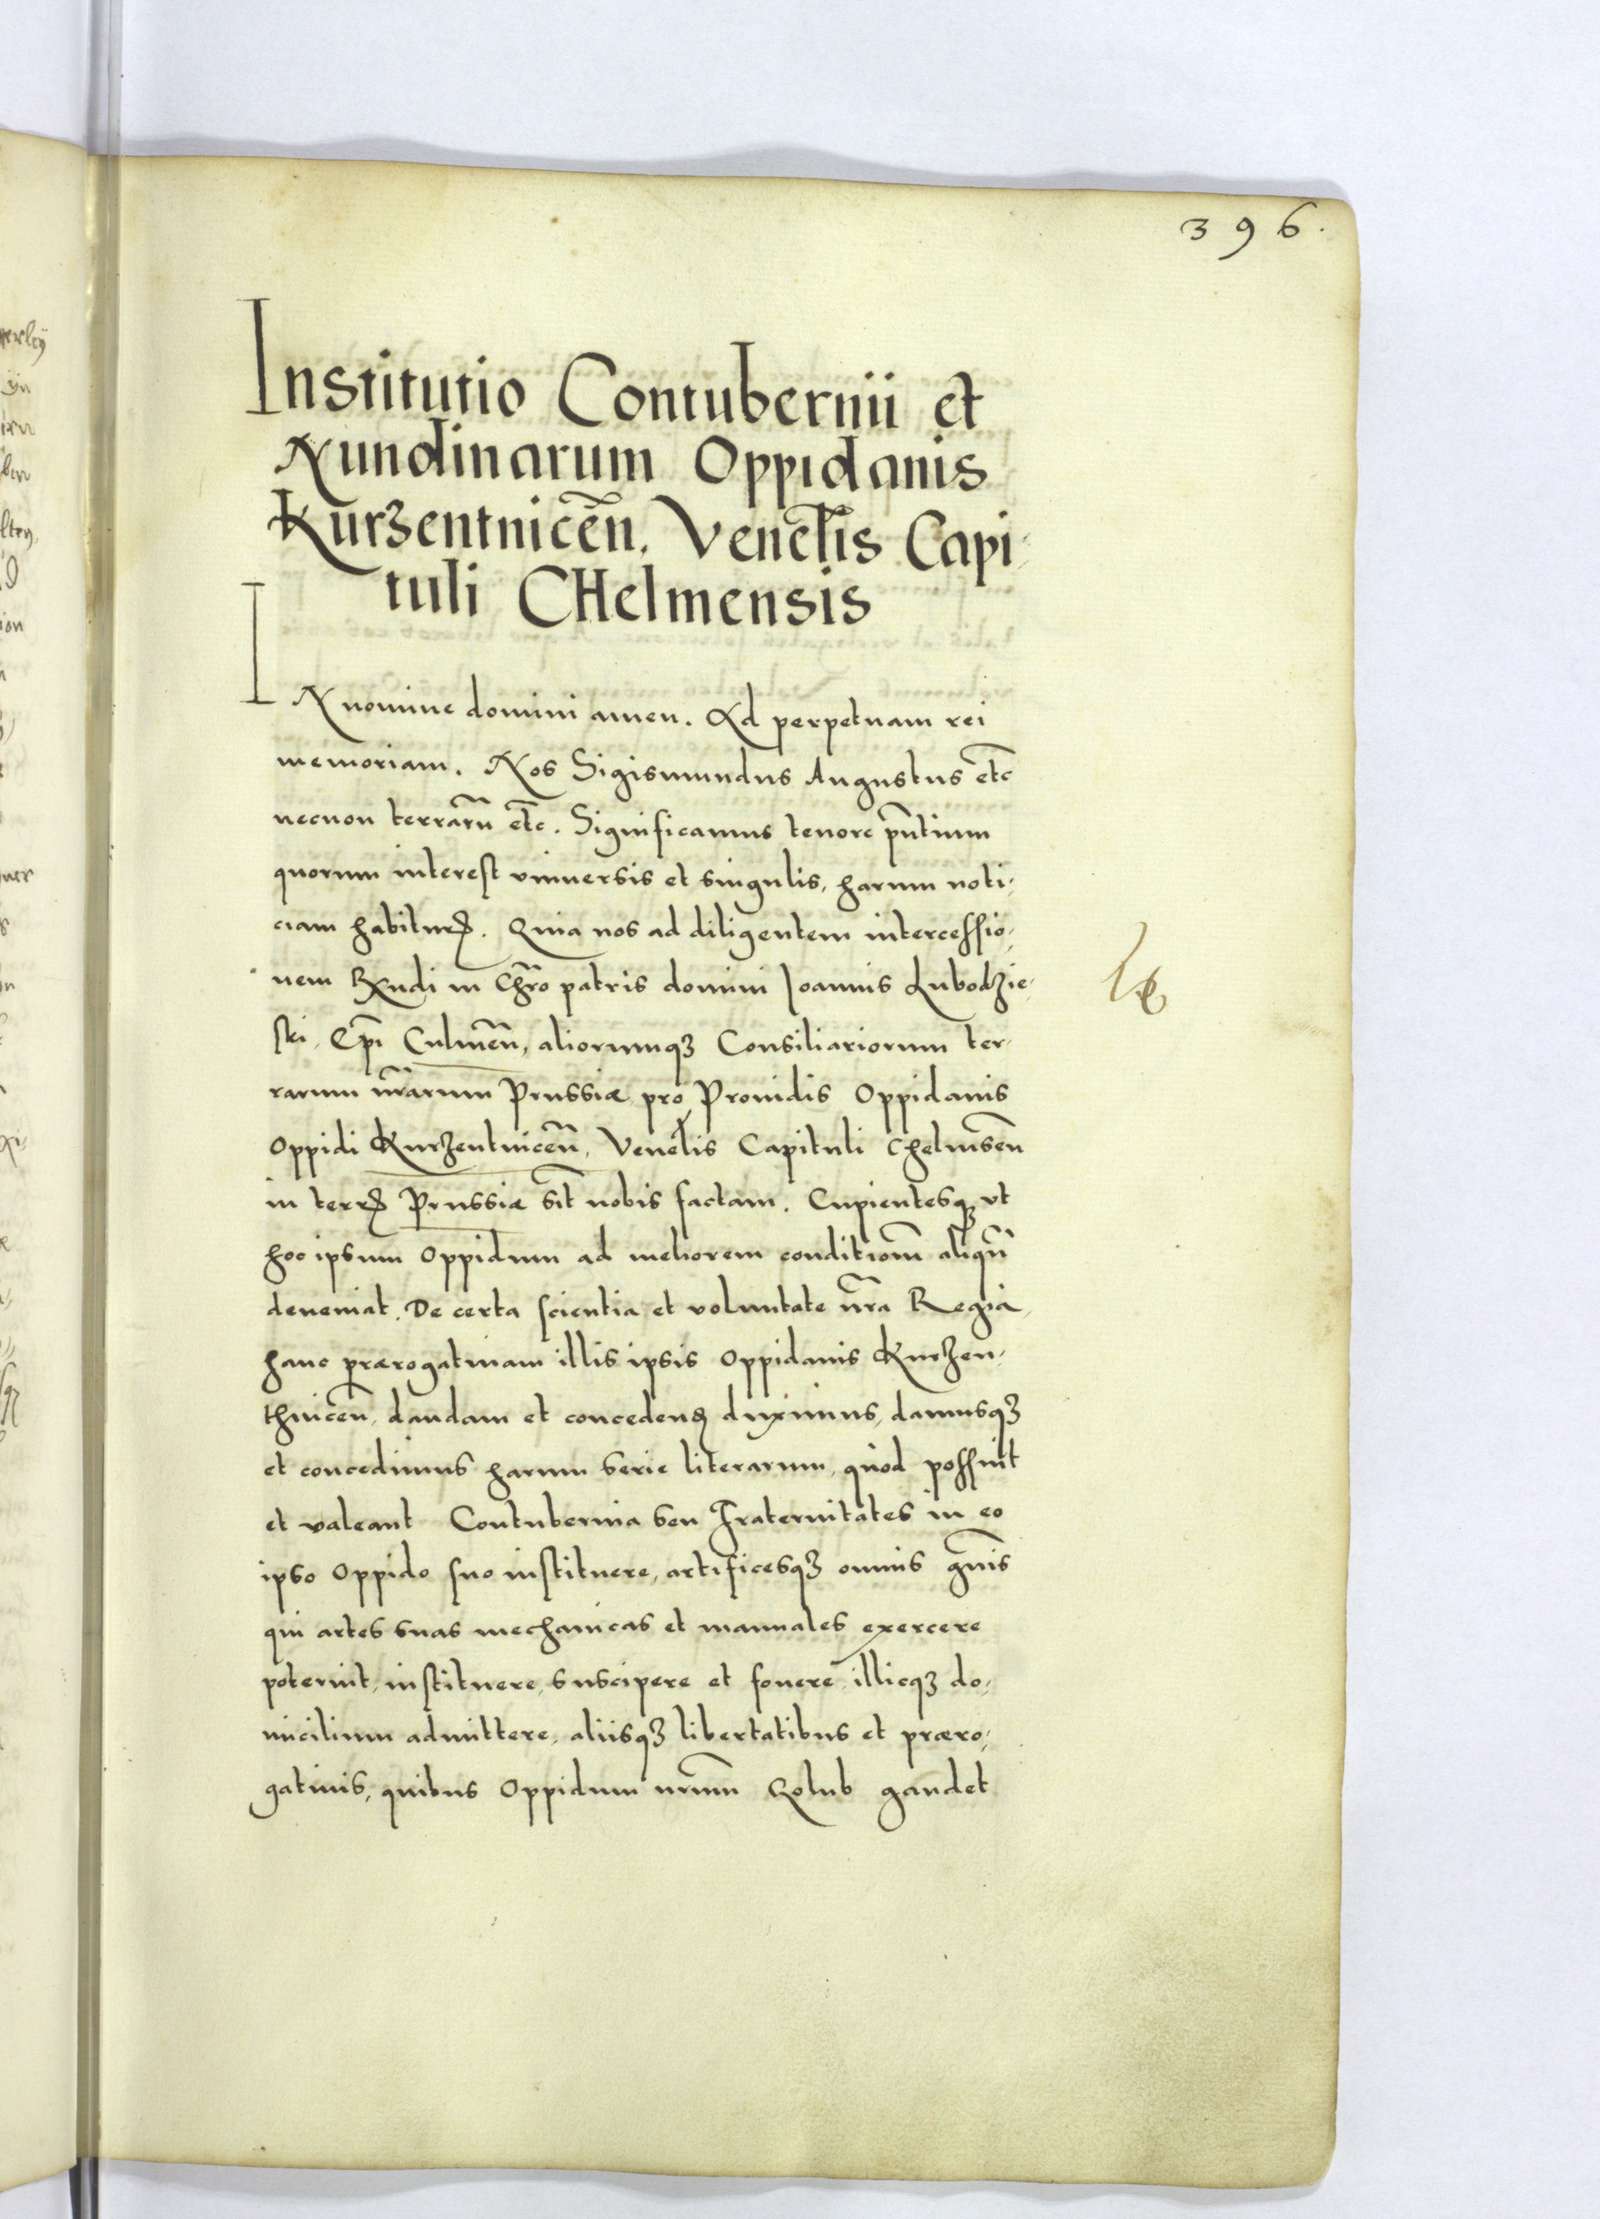 396.
Institutio Contubernii et
Nundinarum Oppidanis
Kurzentnicen̄. Venel̄is Capi-
tuli CHelmensis
IN nomine domini amen. Ad perpetuam rei
memoriam. Nos Sigismundus Augustus etc̄
necnon terrarū etc̄. Significamus tenore pn̄tium
quorum interest vniuersis et singulis, harum noti-
ciam habiturꝭ. Quia nos ad diligentem intercessio-
nem Rx̄ndi in Chr̄o patris domini Joannis Lubodzie-
ski, Ep̄i Culmen̄, aliorumqꝫ Consiliariorum ter-
rarum nr̄arum Prussiæ pro Prouidis Oppidanis
Oppidi Kurzentnicen̄, Venel̄is Capituli Chelmsen̄
in terrꝭ Prussiæ sit̄ nobis factam. Cupientesqꝫ vt
hoc ipsum Oppidum ad meliorem conditiom̄ aliqn̄
deueniat. De certa scientia et voluntate nr̄a Regia,
hanc prærogatiuam illis ipsis Oppidanis Kurzen-
thnicen̄, dandam et concedenꝭ duximus, damusqꝫ
et concedimus harum serie literarum, quòd possint
et valeant Contubernia seu Fraternitates in eo
ipso Oppido suo instituere, artificesqꝫ omnis gn̄is
qui artes suas mechanicas et manuales exercere
poterint, instituere, suscipere et fouere, illicqꝫ do-
micilium admittere, aliisqꝫ libertatibus et præro-
gatiuis, quibus Oppidum nrum̄ Golub gaudet